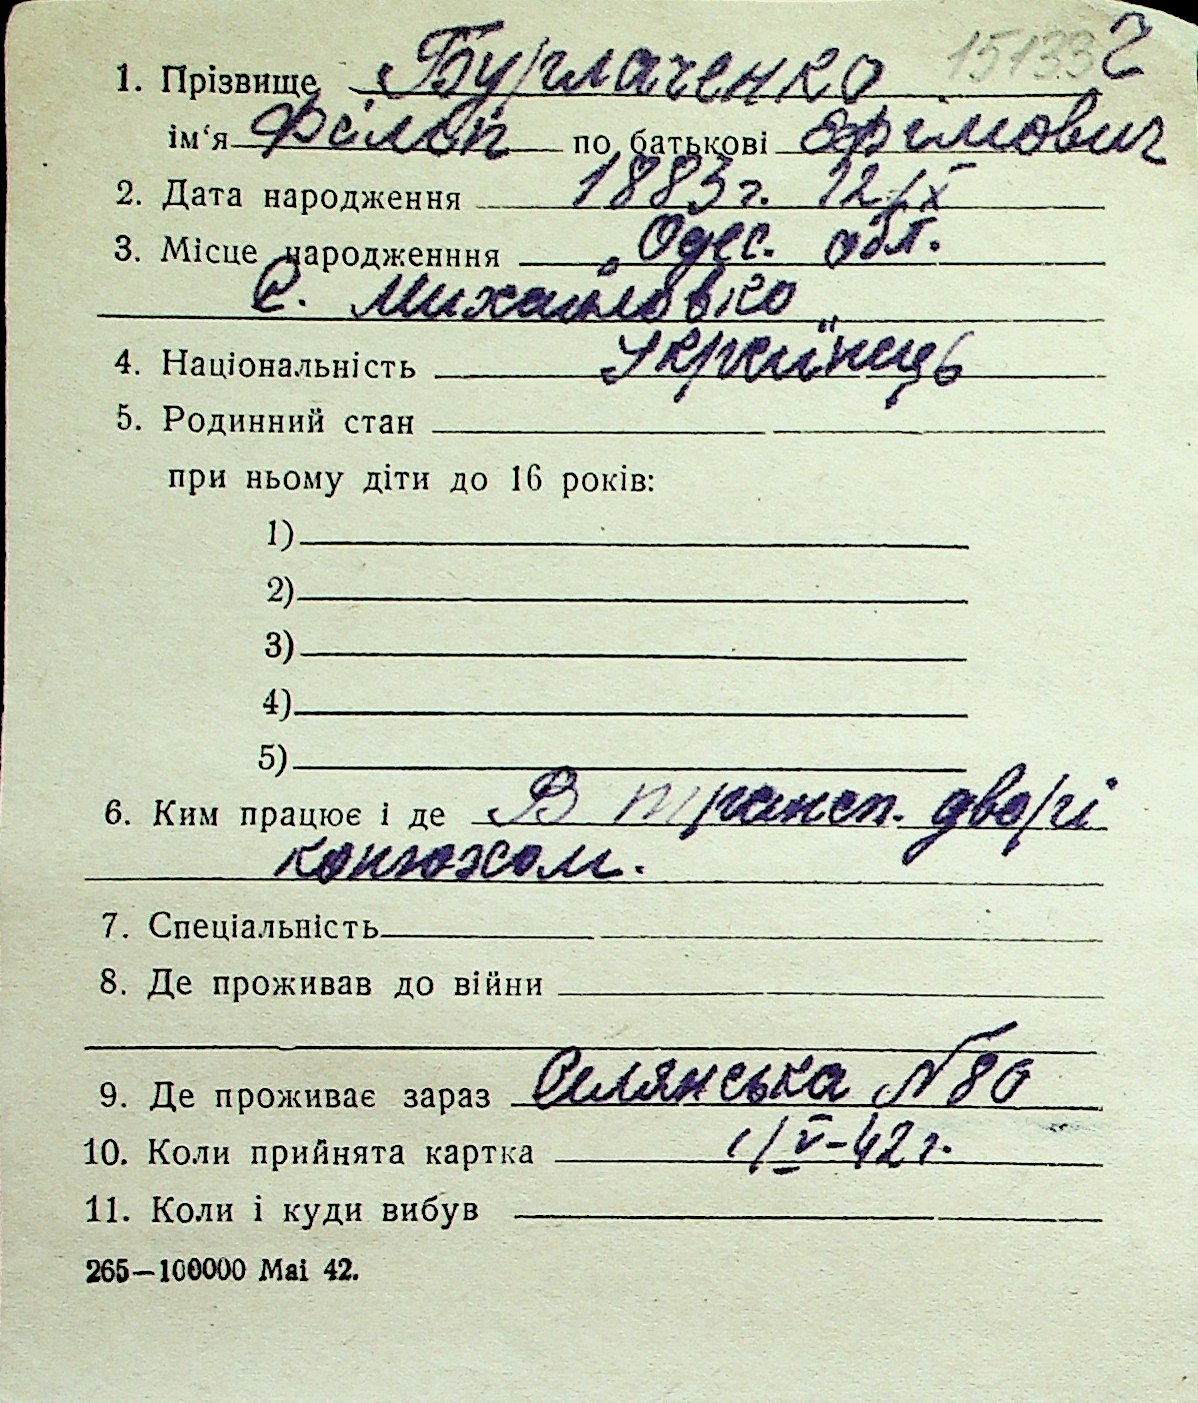 15133 2
1. Прізвище Бурлаченко
ім‘я Філіп по батькові Єфімович
2. Дата народження 1883 г. 12/IX
3. Місце народженння Одес. обл.
С. Михайловко
4. Національність Українець
5. Родинний стан
при ньому діти до 16 років:
1)
2)
3)
4)
5)
6. Ким працює і де В трансп. дворі
конюхом.
7. Спеціальність
8. Де проживав до війни
9. Де проживає зараз Селянська N 80
10. Коли прийнята картка 1/V-42 г.
11. Коли і куди вибув
265—100000 Mai 42.